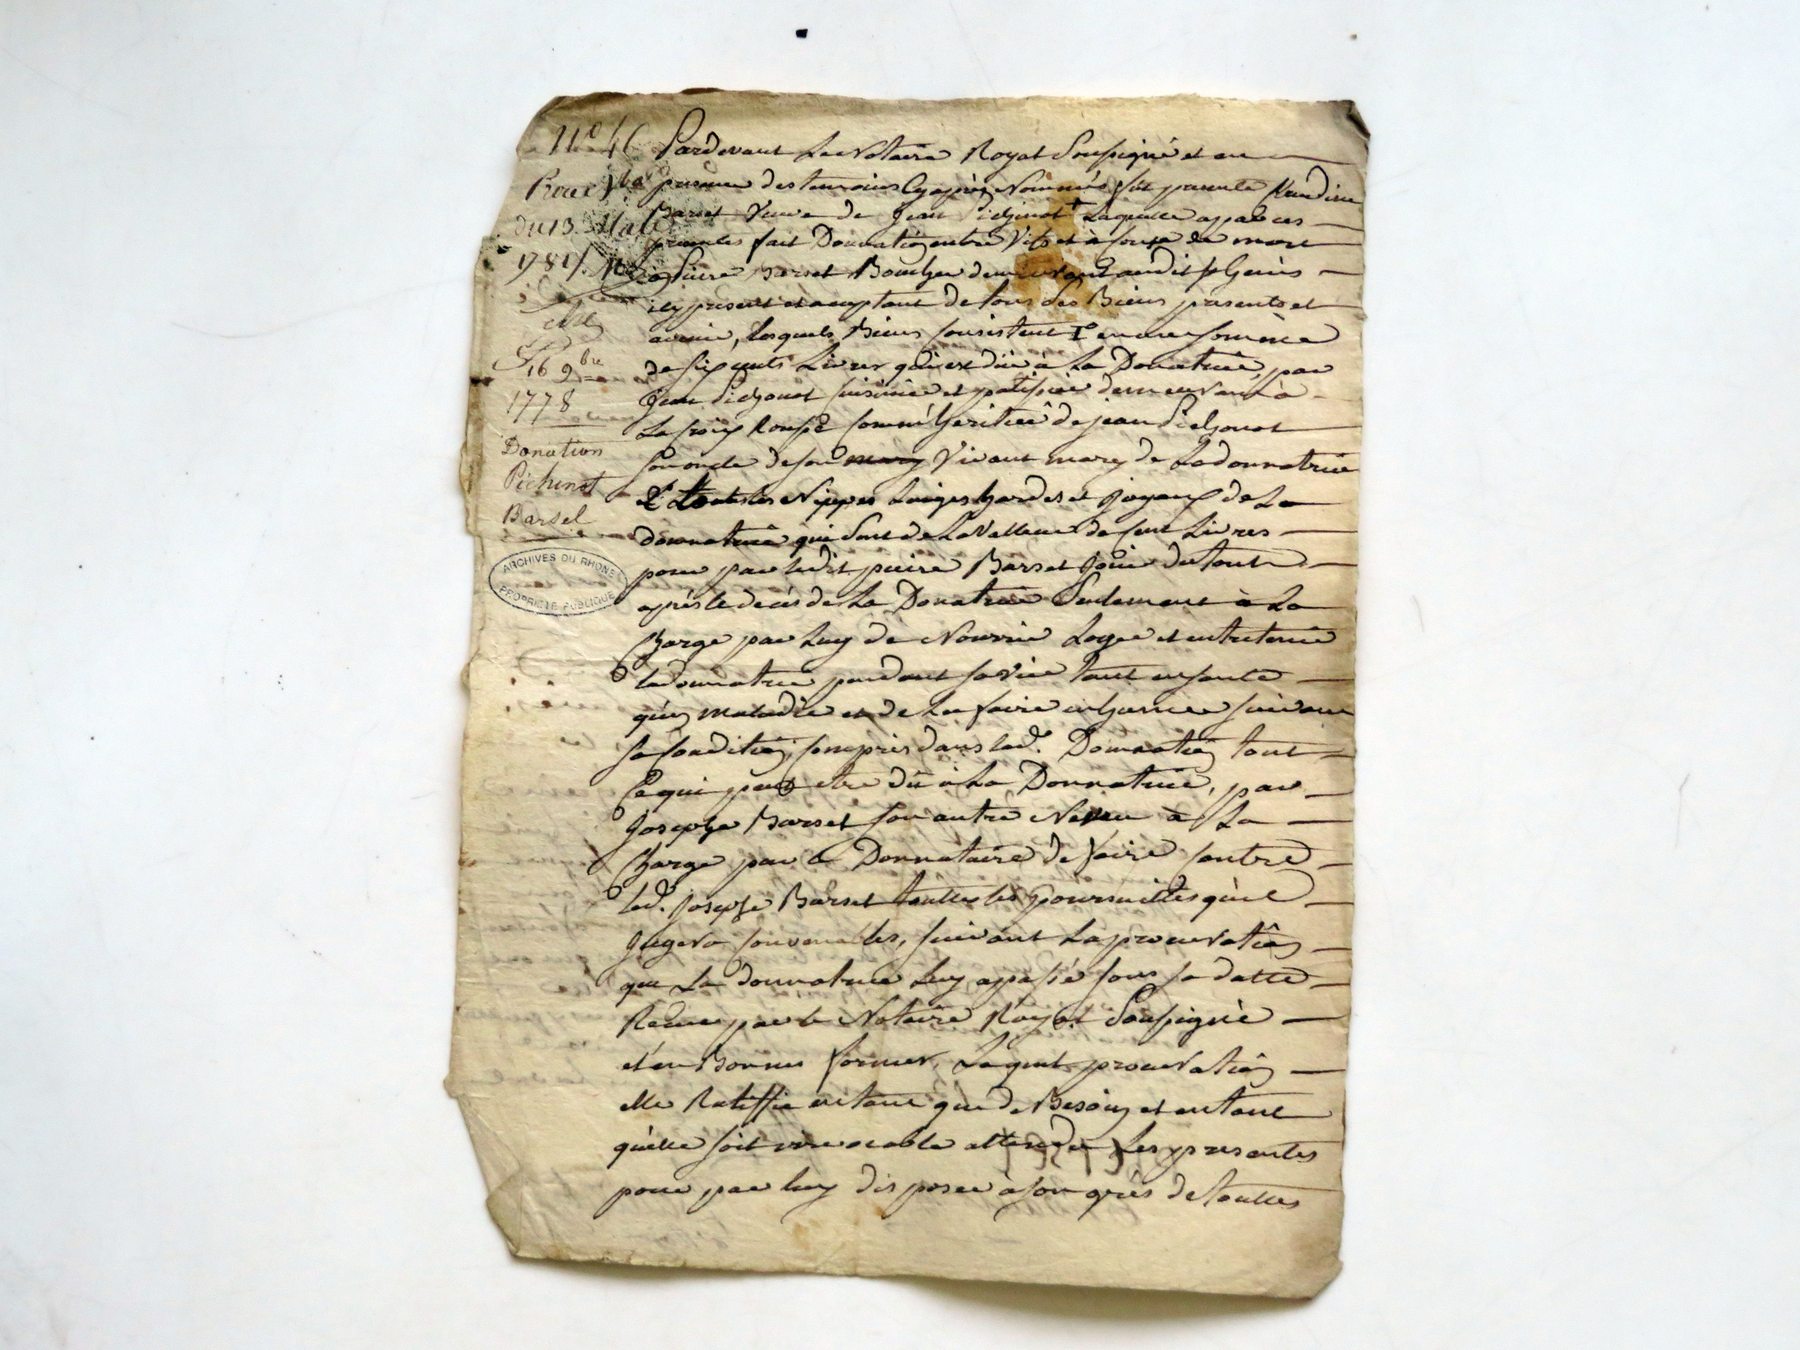 N.o 46
du 13
1781
16 9bre
1778
Donation
Pichinot
Barsel
ARCHIVES DU RHONE
PROPRIETE PUBLIQUE
Pardevant Le Notaire Royal Soussigné et en
presence des temoins Cyaprès Nommés fut presente
Barset Veuve de Jean Pichinot Laquelle par ces
presentes fait Donnation entre Vifs et à cause de mort
à Pierre Barset Boucher demeurant audit St Genis
icy present et acceptant de tous Ses Biens presents et
avenir, lesquels Biens consistent 1o en une somme
de six cents Livres qui est düe à La Donatrice, par
Jean Pichonot cuisinier et patissier demeurant à
La Croix Rousse comme heritier de jean Pichonot
son oncle de son Vivant mary de Ladonnatrice
2o toutes les Nippes Linges hardes et joyaux de La
donnatrice qui sont de La Valleur de cent Livres
pour par ledit pierre Barset jouir du tout
après le deces de La Donatrice Seulement à La
charge par Luy de Nourrir Loger et entretenir
ladonnatrice pendant sa vie tant en sante
qu'en maladie et de La faire inhumer suivant
sa condition, compris dans lad. Donnation tout
Ce qui peut etre dû à La Donnatrice, par
Joseph Barset son autre Neveu à La
charge par le Donnataire de faire contre
led. Joseph Barset touttes les poursuittes qu'il
jugera convenables, suivant La procuration
que La donnatrice Luy a passé sous sa datte
Reçue par le Notaire Royal Soussigné
et en Bonnes formes, Laquelle procuration
elle Ratiffie en tant que de Besoin et entant
qu'elle soit irrevocable attendu Les presentes
pour par luy disposer à son grés de touttes